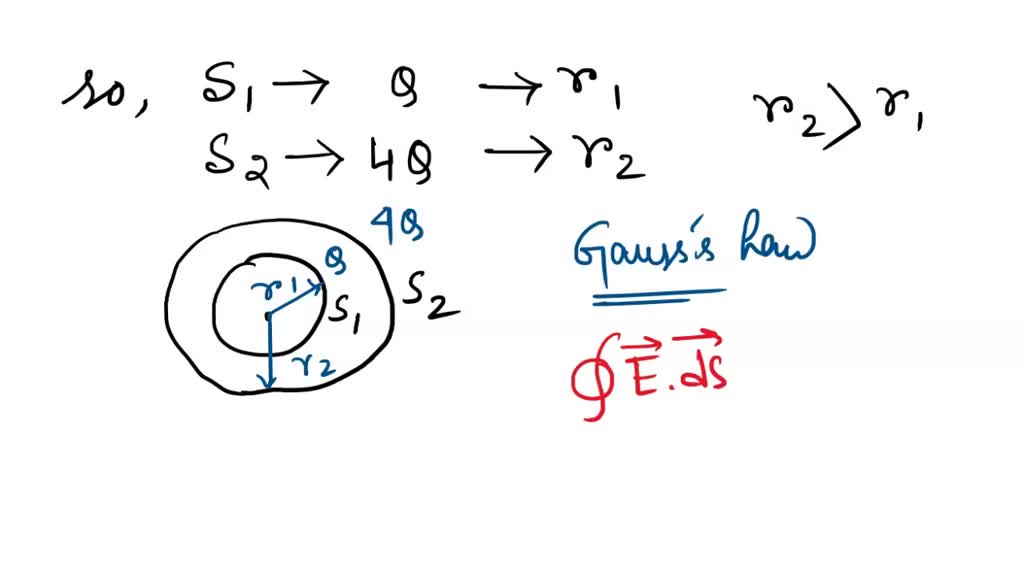 so, S₁ → Q → r₁
r₂ > r₁
S₂ → 4Q → r₂
4Q
Q
r₁
S₁
S₂
r₂
Gauss's Law
∮ E⃗ . dS⃗